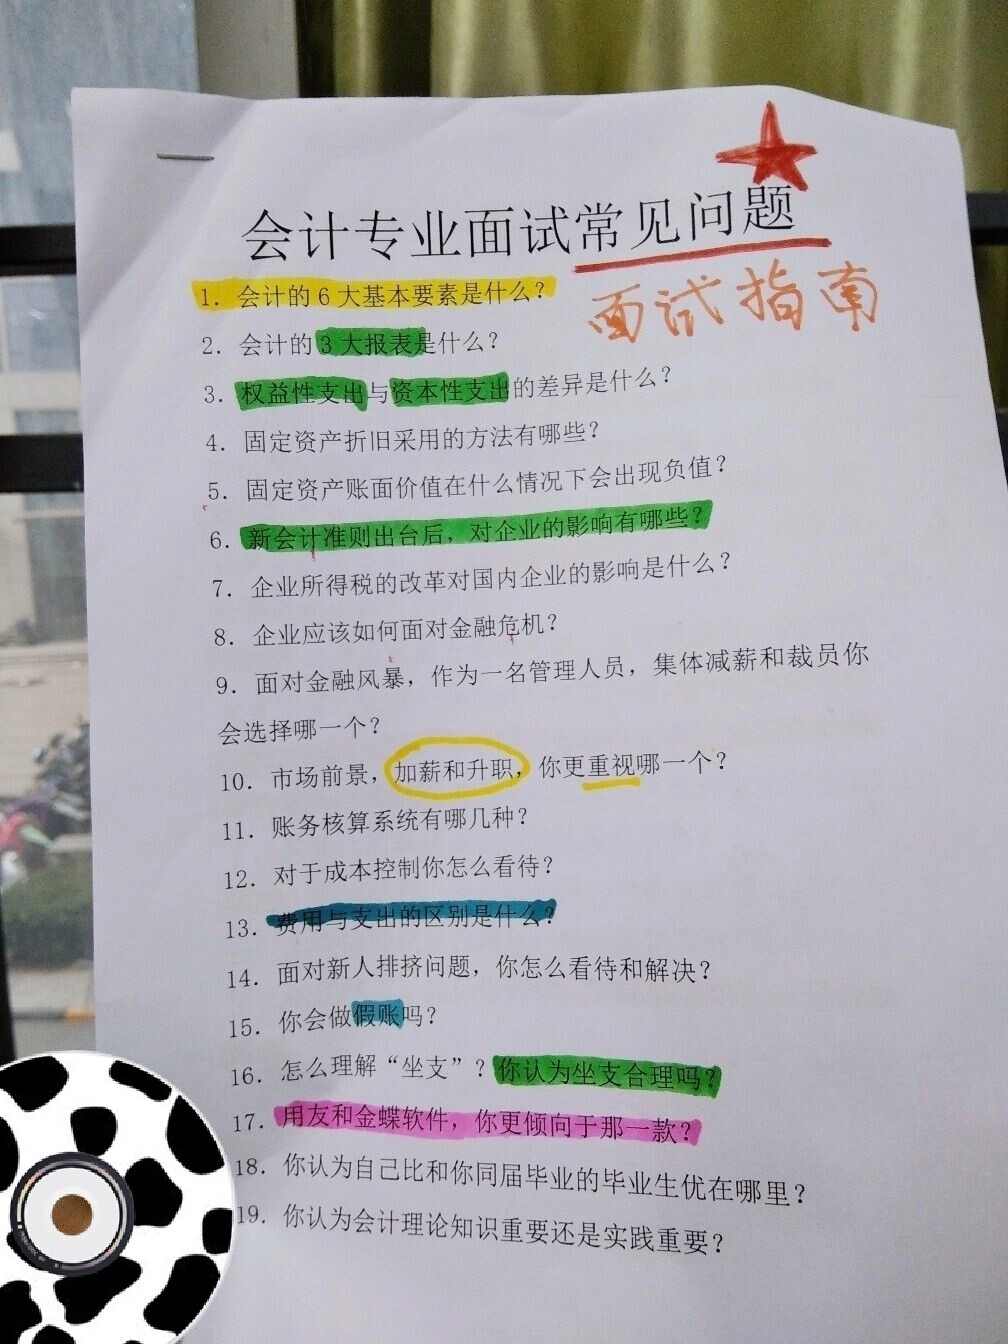 会计专业面试常见问题
面试指南
1. 会计的 6 大基本要素是什么？
2. 会计的 3 大报表是什么？
3. 权益性支出与资本性支出的差异是什么？
4. 固定资产折旧采用的方法有哪些？
5. 固定资产账面价值在什么情况下会出现负值？
6. 新会计准则出台后，对企业的影响有哪些？
7. 企业所得税的改革对国内企业的影响是什么？
8. 企业应该如何面对金融危机？
9. 面对金融风暴，作为一名管理人员，集体减薪和裁员你
会选择哪一个？
10. 市场前景，加薪和升职，你更重视哪一个？
11. 账务核算系统有哪几种？
12. 对于成本控制你怎么看待？
13. 费用与支出的区别是什么？
14. 面对新人排挤问题，你怎么看待和解决？
15. 你会做假账吗？
16. 怎么理解“坐支”？你认为坐支合理吗？
17. 用友和金蝶软件，你更倾向于那一款？
18. 你认为自己比和你同届毕业的毕业生优在哪里？
19. 你认为会计理论知识重要还是实践重要？